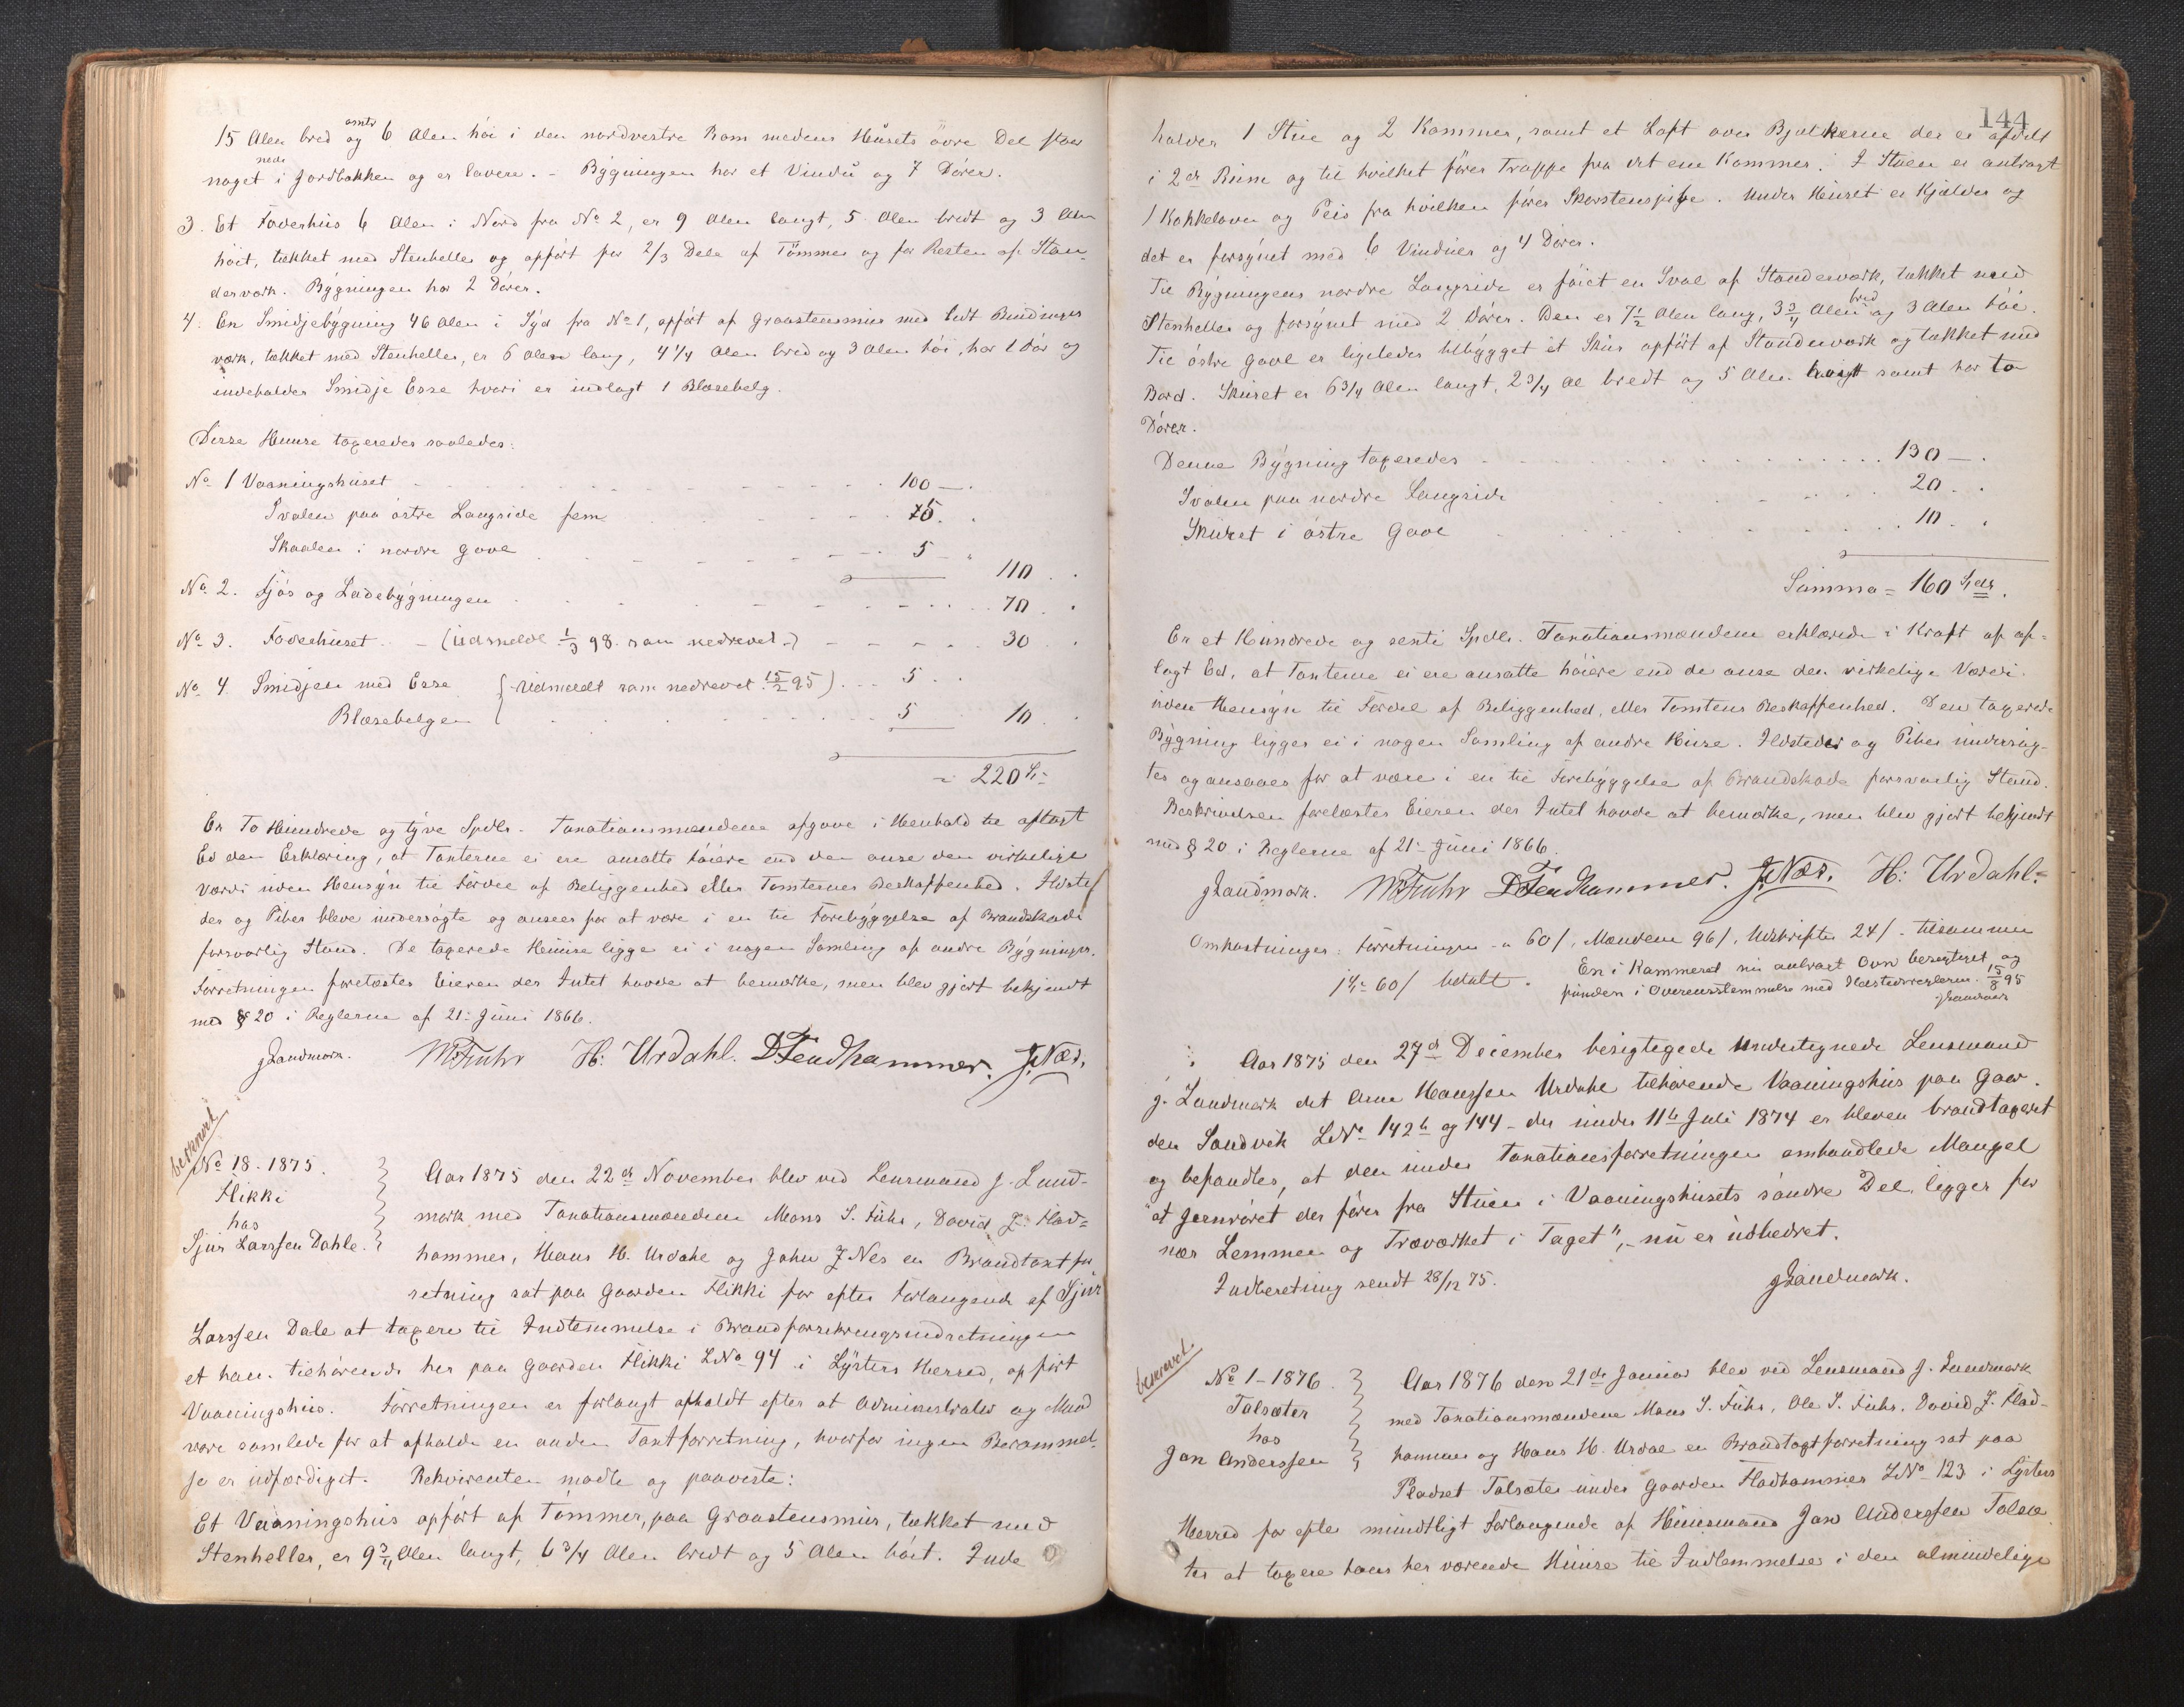 15 Alen bred og omtr 6 Alen höi i den nordvestre Ram medens Husets övre Del staar
noget nede i Jordbakken og er lavere. – Bygningen har et Vindu og 7 Dörer.
3. Et Foderhus 6 Alen i Nord fra No 2, er 9 Alen langt, 5 Alen bredt og 3 Alen
höit, tækket med Stenheller og opfört for 2/3 Dele af Tömmer og for Resten af Stan-
derværk. Bygningen har 2 Dörer.
4. En Smidjebygning 46 Alen i Syd fra No 1, opfört af Graastensmur med lidt Bindings
værk, tækket med Stenheller, er 6 Alen lang, 4 1/4 Alen bred og 3 Alen höi, har 1 Dör og
indeholder Smidje Esse hvori er indlagt 1 Blæsebelg.
Disse Huuse taxeredes saaledes:
No 1 Vaaningshuset 100 –
Svalen paa östre Langside fem 5.
Skaalen i nordre Gavl 5 110
No 2. Fjös og Ladebygningen 70
No 3. Foderhuset – (Udmeldt 1/3 98 som nedrevet –) 30
No 4. Smidjen med Esse (Udmeldt som nedrevet 15/2 95) 5
Blæsebelgen 5 10
= 220 Sp
Er To Hundrede og tyve Spdlr. Taxationsmændene afgave i Henhold til aflagt
Ed den Erklæring, at Taxterne ei ere ansatte höiere end den anse den virkelige
Værdi uden Hensyn til Fordel af Beliggenhed eller Tomternes Beskaffenhed. Ildste
der og Piber bleve undersögte og ansees for at være i en til Forebyggelse af Brandskade
forsvarlig Stand. De taxerede Huuse ligge ei i nogen Samling af andre Bygninger.
Forretningen forelæstes Eieren der Intet havde at bemærke, men blev gjort bekjendt
med § 20 i Reglerne af 21. Juni 1866.
JLandmark. MSFuhr H: Urdahl. DFladhammer. JNæs.
beskrevet
No 18 – 1875.
Flikki
hos
Sjur Larssen Dahle.
Aar 1875 den 22de November blev ved Lensmand J. Land-
mark med Taxationsmændene Mons S. Fuhr, David J. Flad-
hammer, Hans H. Urdahl og John J Nes en Brandtaxtfor-
retning sat paa Gaarden Flikki for efter Forlangende af Sjur
Larssen Dale at taxere til Indlemmelse i Brandforsikringsindretningen
et ham tilhörende her paa Gaarden Flikki LNo 94 i Lysters Herred, opfört
Vaaningshus. Forretningen er forlangt afholdt efter at Administrator og Mænd
vare samlede for at afholde en anden Taxtforretning, hvorfor ingen Berammel-
se er udfærdiget. Rekvirenten mödte og paaviste:
Et Vaaningshus opfört af Tömmer, paa Graastensmur, tækket med
Stenheller, er 9 3/4 Alen langt, 6 3/4 Alen bredt og 5 Alen höit. Inde
144
holder 1 Stue og 2 Kammer, samt et Loft over Bjelkerne der er afdelt
i 2de Rum og til hvilket förer Trappe fra det ene Kammer. I Stuen er anbragt
1 Kakkelovn og Peis fra hvilken förer Skorstenspibe. Under Huset er Kjælder og
det er forsynet med 6 Vinduer og 4 Dörer.
Til Bygningens nordre Langside er föiet en Sval af Standerværk, tækket med
Stenheller og forsynet med 2 Dörer. Den er 7 1/2 Alen lang, 3 3/4 Alen bred og 3 Alen höi.
Til östre Gavl er ligeledes tilbygget et Skur opfört af Standerværk og tækket med
Bord. Skuret er 6 3/4 Alen langt, 2 3/4 Al bredt og 5 Alen höigt samt har to
Dörer.
Denne Bygning taxeredes 130 –
Svalen paa nordre Langside 20
Skuret i östre Gavl 10
Summa = 160 Spdlr.
Er et Hundrede og sexti Spdlr. Taxationsmændene erklærede i Kraft af af-
lagt Ed, at Taxterne ei ere ansatte höiere end de anse den virkelige Værdi
uden Hensyn til Fordel af Beliggenhed, eller Tomtens Beskaffenhed. Den taxerede
Bygning ligger ei i nogen Samling af andre Huse. Ildsteder og Piber undersög-
tes og ansaaes for at være i en til Forebyggelse af Brandskade forsvarlig Stand.
Beskrivelsen forelæstes Eieren der Intet havde at bemærke, men blev gjort bekjendt
med § 20 i Reglerne af 21. Juni 1866.
JLandmark. MSFuhr DFladhammer. JNæs. H: Urdahl.
Omkostninger: Forretningen – 60 /, Mændene 96 /, Udskrifter 24 / – tilsammen
1 Sp 60 / betalt. En i Kammeret nu anbragt Ovn besigtiget og
funden i Overensstemmelse med Ildstedsreglerne. 15/8 95
JLandmark
Aar 1875 den 27de December besigtigede undertegnede Lensmand
J. Landmark det Arne Hanssen Urdahl tilhörende Vaaningshus paa Gaar-
den Sandvik LNo 142b og 144 – der under 11te Juli 1874 er bleven brandtaxeret
og befandtes, at den under Taxationsforretningen omhandlede Mangel
"at Jernröret der förer fra Stuen i Vaaningshusets söndre Del, ligger for
nær Lemmen og Træværket i Taget", – nu er udbedret.
Indberetning sendt 28/12 75. JLandmark.
beskrevet
No 1 – 1876.
Talsæter
hos
Jan Anderssen
Aar 1876 den 21de Januar blev ved Lensmand J. Landmark
med Taxationsmændene Mons S. Fuhr, Ole S. Fuhr, David J. Flad-
hammer og Hans H. Urdal en Brandtaxtforretning sat paa
Pladset Talsæter under Gaarden Fladhammer LNo 123 i Lysters
Herred for efter mundtligt Forlangende af Huusmand Jan Anderssen Talsæ
ter at taxere hans her værende Huuse til Indlemmelse i den almindelige